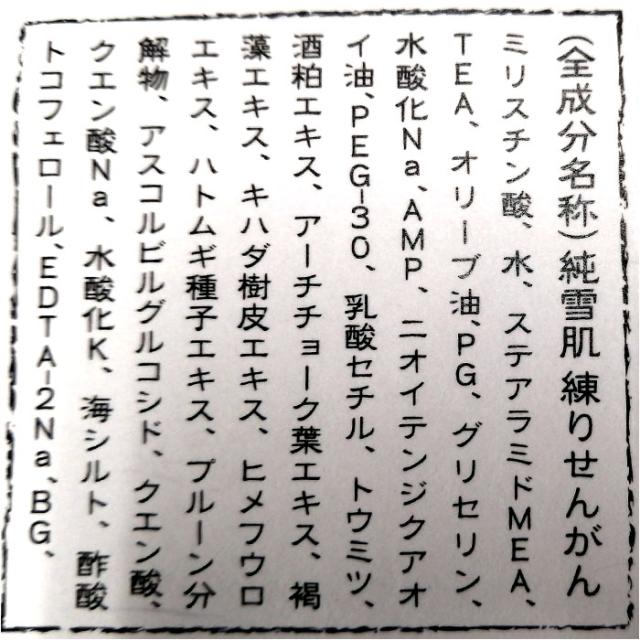 (全成分名称)純雪肌 練りせんがん
ミリスチン酸、水、ステアラミドMEA、
TEA、オリーブ油、PG、グリセリン、
水酸化Na、AMP、ニオイテンジクアオ
イ油、PEG-30、乳酸セチル、トウミツ、
酒粕エキス、アーチチョーク葉エキス、褐
藻エキス、キハダ樹皮エキス、ヒメフウロ
エキス、ハトムギ種子エキス、プルーン分
解物、アスコルビルグルコシド、クエン酸、
クエン酸Na、水酸化K、海シルト、酢酸
トコフェロール、EDTA-2Na、BG、